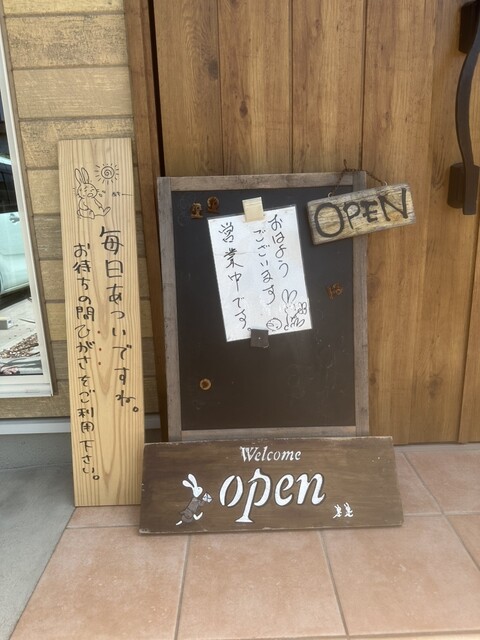 毎日あついですね。
お待ちの間ひがさをご利用下さい。
おはよう
ございます
営業中です
OPEN
Welcome
open